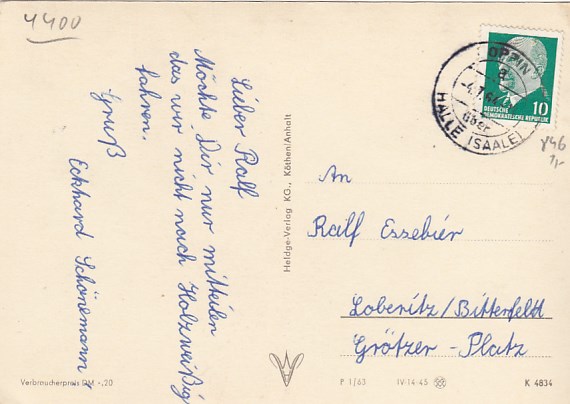 4400
Lieber Ralf
Möchte Dir nur mitteilen
das wir nicht nach Holzweißig
fahren.
Gruß
Eckhard Schönemann
Heldge-Verlag KG., Köthen/Anhalt
OPPIN
a
über
HALLE (SAALE)
10
DEUTSCHE
DEMOKRATISCHE REPUBLIK
An
Ralf Essebier
Loberitz/Bitterfeld
Grötzer-Platz
Verbraucherpreis DM -,20
P 1/63 IV-14-45
K 4834